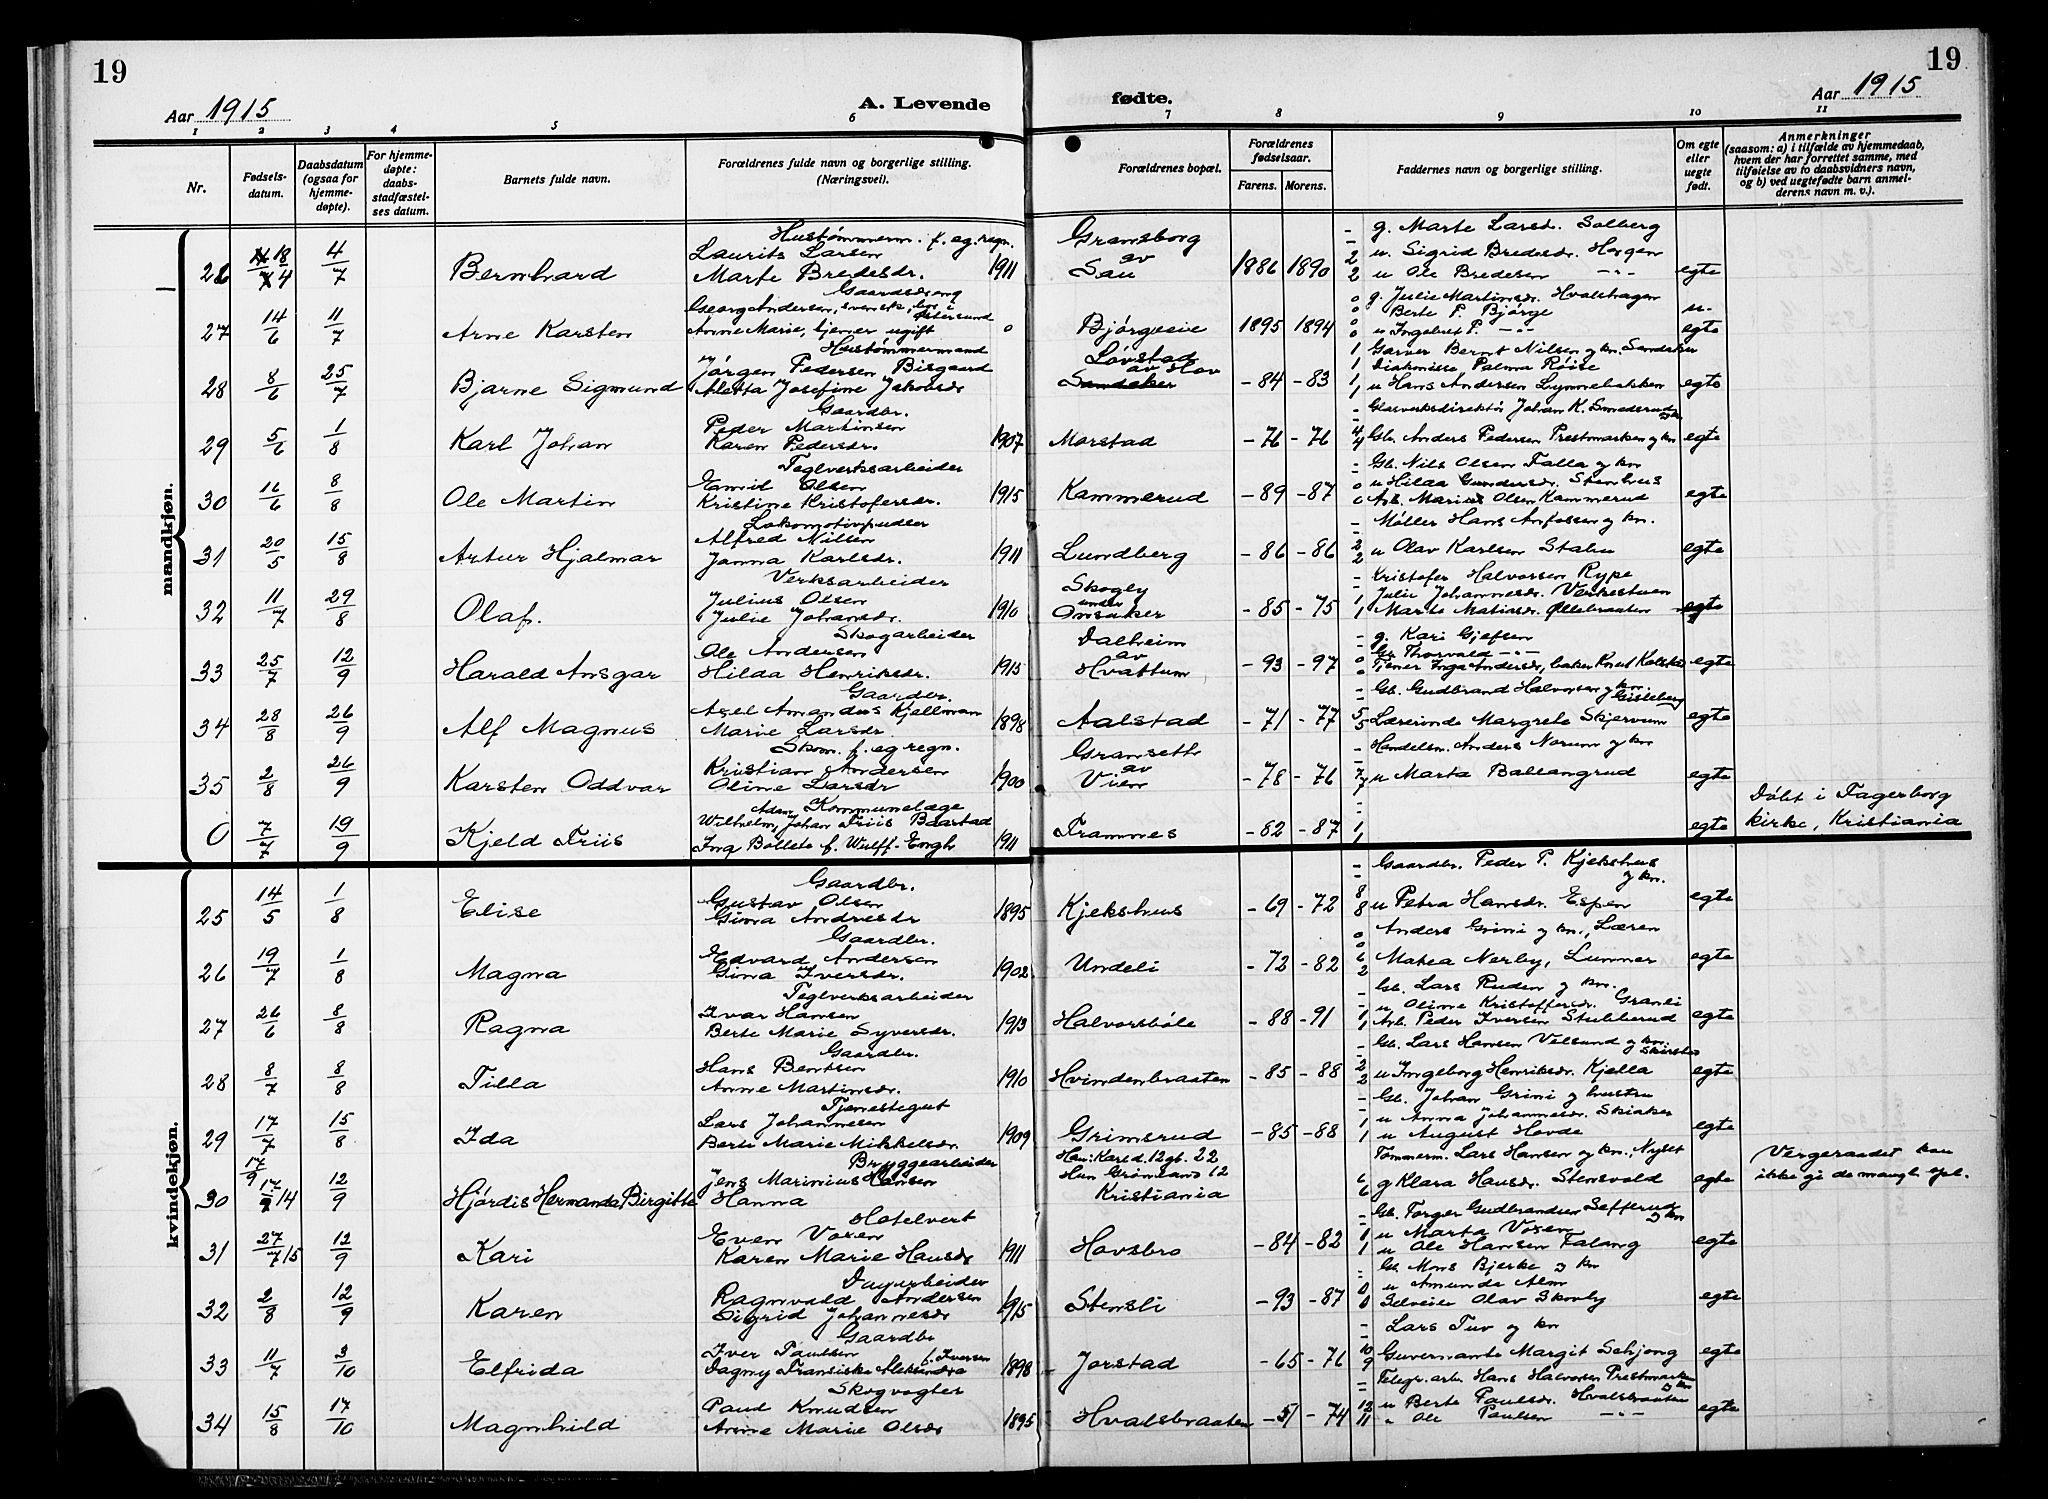 19
19
Aar 1915
A. Levende fødte.
Aar 1915
1 2 3 4 5 6 7 8 9 10 11
Nr.
Fødsels-
datum.
Daabsdatum
(ogsaa for
hjemme-
døpte).
For hjemme-
døpte:
daabs-
stadfæstel-
ses datum.
Barnets fulde navn.
Forældrenes fulde navn og borgerlige stilling.
(Næringsvei).
Forældrenes bopæl.
Forældrenes
fødselsaar.
Farens. Morens.
Faddernes navn og borgerlige stilling.
Om egte
eller
uegte
født.
Anmerkninger
(saasom: a) i tilfælde av hjemmedaab,
hvem der har forrettet samme, med
tilføielse av to daabsvidners navn,
og b) ved uegtefødte barn anmel-
derens navn m. v.).
mandkjøn.
26 18/4 4/7 Bernhard
Hustømmerm. f. eg. regn.
Laurits Larsen
Marte Bredesdr. 1911
Gransborg
av
Sau 1886 1890
g. Marte Larsdr. Solberg
u. Sigrid Bredesdr. Horgen
u Ole Bredesen -"- egte
27 14/6 11/7 Arne Karsten
Gaardsdreng
Georg Andersen, svensk, bor i
Østersund
Anne Marie, tjener ugift 0
Bjørgeeie 1895 1894
g. Julie Martinsdr. Hvalshagen
Berte P. Bjørge
u Ingebret P. -"- u-
egte
28 8/6 25/7 Bjarne Sigmund
Hustømmermand
Jørgen Pedersen Bisgaard
Aletta Josefine Jakobsdr
Løvstad
av Hov
Sandaker -84 -83
Garver Bernt Nilsen og kn. Sandaker
Diakonisse Palma Røise
u Hans Andersen Lynnebakken egte
29 5/6 1/8 Karl Johan
Gaardbr.
Peder Martinsen
Karen Pedersdr. 1907
Morstad -76 -76
Glasverksdirektør Johan K. Smedsrud
Gb. Anders Pedersen Prestmarken og kn egte
30 16/6 8/8 Ole Martin
Teglverksarbeider
Emil Olsen
Kristine Kristofersdr. 1915
Kammerud -89 -87
Gb. Nils Olsen Falla og kn
u Hilda Gundersdr. Stenhus
Arb. Marius Olsen Kammerud egte
31 20/5 15/8 Artur Hjalmar
Lokomotivpudser
Alfred Nilsen
Janna Karlsdr. 1911
Lundberg -86 -86
Møller Hans Anfossen og kn.
u Olav Karlsen Stahn egte
32 11/7 29/8 Olaf.
Verksarbeider
Julius Olsen
Julie Johansdr. 1910
Skogly
under
Onsaker -85 -75
Kristofer Halvorsen Rype
Julie Johannesdr. Verkestuen
Marte Matisdr. Øllebraaten egte
33 25/7 12/9 Harald Ansgar
Skogarbeider
Ole Andersen
Hilda Henriksdr. 1915
Dalheim
av
Hvattum -93 -97
g. Kari Gjefsen
Gb. Thorvald -"-
Tjener Inga Andersdr, baker Knut egte
34 28/8 26/9 Alf Magnus
Gaardbr.
Axel Amandus Kjellman
Marie Larsdr 1898
Aalstad -71 -77
Gb. Gudbrand Halvorsen og kn.
Gisleberg
Lærerinde Margrete Skjervum egte
35 2/8 26/9 Karsten Oddvar
Skom. f. eg regn.
Kristian Andersen
Oline Larsdr 1900
Gransetb
av
Vien -78 -76
Handelsm. Anders Norum og kn
u Marta Ballangrud egte
0 7/7 19/9 Kjeld Friis
Kommunelæge
Adam
Wilhelm, Johan Friis Baastad
Inga Bollete f. Wulff-Engh 1911
Framnes -82 -87 egte
Døbt i Fagerborg
kirke, Kristiania
kvindekjøn.
25 14/5 1/8 Elise
Gaardbr.
Gustav Olsen
Gina Andresdr 1895
Kjekshus -69 -72
Gaardbr. Peder P. Kjekshus
og kn.
u Petra Hansdr. Espen egte
26 19/7 1/8 Magna
Gaardbr.
Edvard Andersen
Gina Iversdr. 1902
Undeli -72 -82
Anders Grini og kn., Læren
Matea Nerby, Lunner egte
27 26/6 8/8 Ragna
Teglverksarbeider
Ivar Hansen
Berte Marie Syversdr. 1913
Halvorsbøle -88 -91
Gb. Lars Ruden og kn.
u Oline Kristoffersdr. Granli
Arb. Peder Iversen Stubberud egte
28 8/7 8/8 Tilla
Gaardbr.
Hans Bentsen
Anne Martinsdr. 1910
Hvindenbraaten -85 -88
Gb. Lars Hansen Velsund og kn.
u Ingeborg Henriksdr. Kjella egte
29 17/7 15/8 Ida
Tjenestegut
Lars Johannesen
Berte Marie Mikkelsdr. 1909
Grimsrud -85 -88
Gb. Johan Grini og hustru
u Anna Johannesdr. Skiaker
u August Hovde egte
17/9
30 14 12/9 Hjørdis Hermanda Birgitte
Bryggearbeider
Jens Marinius Hansen
Hanna
Han: Karl d. 12 gt. 22
Hun Grønland 12
Kristiania
Tømmerm. Lars Hansen og kn., Nyset
g Klara Hansdr. Stensvold egte
Vergeraadet kan
ikke gi de mangl. opl.
31 27/7 15 12/9 Kari
Hotelvert
Even Voxen
Karen Marie Hansdr 1911
Hovsbro -84 -82
Gb. Torger Gudbrandsen Sefferud
og kn
u Marta Voxen
u Ole Hansen Falang egte
32 2/8 12/9 Karen
Dagarbeider
Ragnvald Andersen
Sigrid Johannesdr 1915
Stensli -93 -87
Gb. Mons Bjerke og kn
u Amunda Alm
Selveier Olav Skovly egte
33 11/7 3/10 Elfrida
Gaardbr
Iver Paulsen
f. Iversen
Dagny Fransiske Aleksandra 1898
Jorstad -65 -76
Lars Tuv og kn
Guvernante Margit Schjong egte
34 15/8 17/10 Magnhild
Skogvogter
Paul Knudsen
Anne Marie Olsdr 1895
Hvalsbraaten -51 -74
Telegr.arb. Hans Halvorsen Prestmarken
og kn
u Berte Paulsdr. Hvalsbraaten
" Ole Paulsen -"- egte